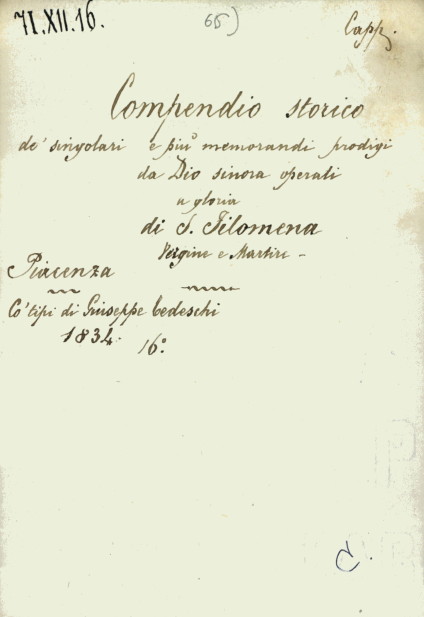 71.XII.16.
65)
Capp.
Compendio storico
de' singolari e più memorandi prodigi
da Dio sinora operati
a gloria
di S. Filomena
Vergine e Martire -
Piacenza
Co' tipi di Giuseppe Tedeschi
1834. 16°.
C.